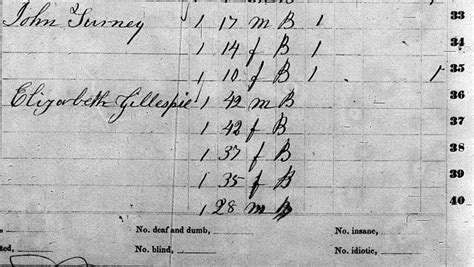 John Turney 1 17 m B 1 33
1 14 f B 1 34
1 10 f B 1 1 35
Elizabeth Gillespie 1 42 m B 36
1 42 f B 37
1 37 f B 38
1 35 f B 39
1 28 m B 40
No. deaf and dumb, No. insane,
ted, No. blind, No. idiotic,